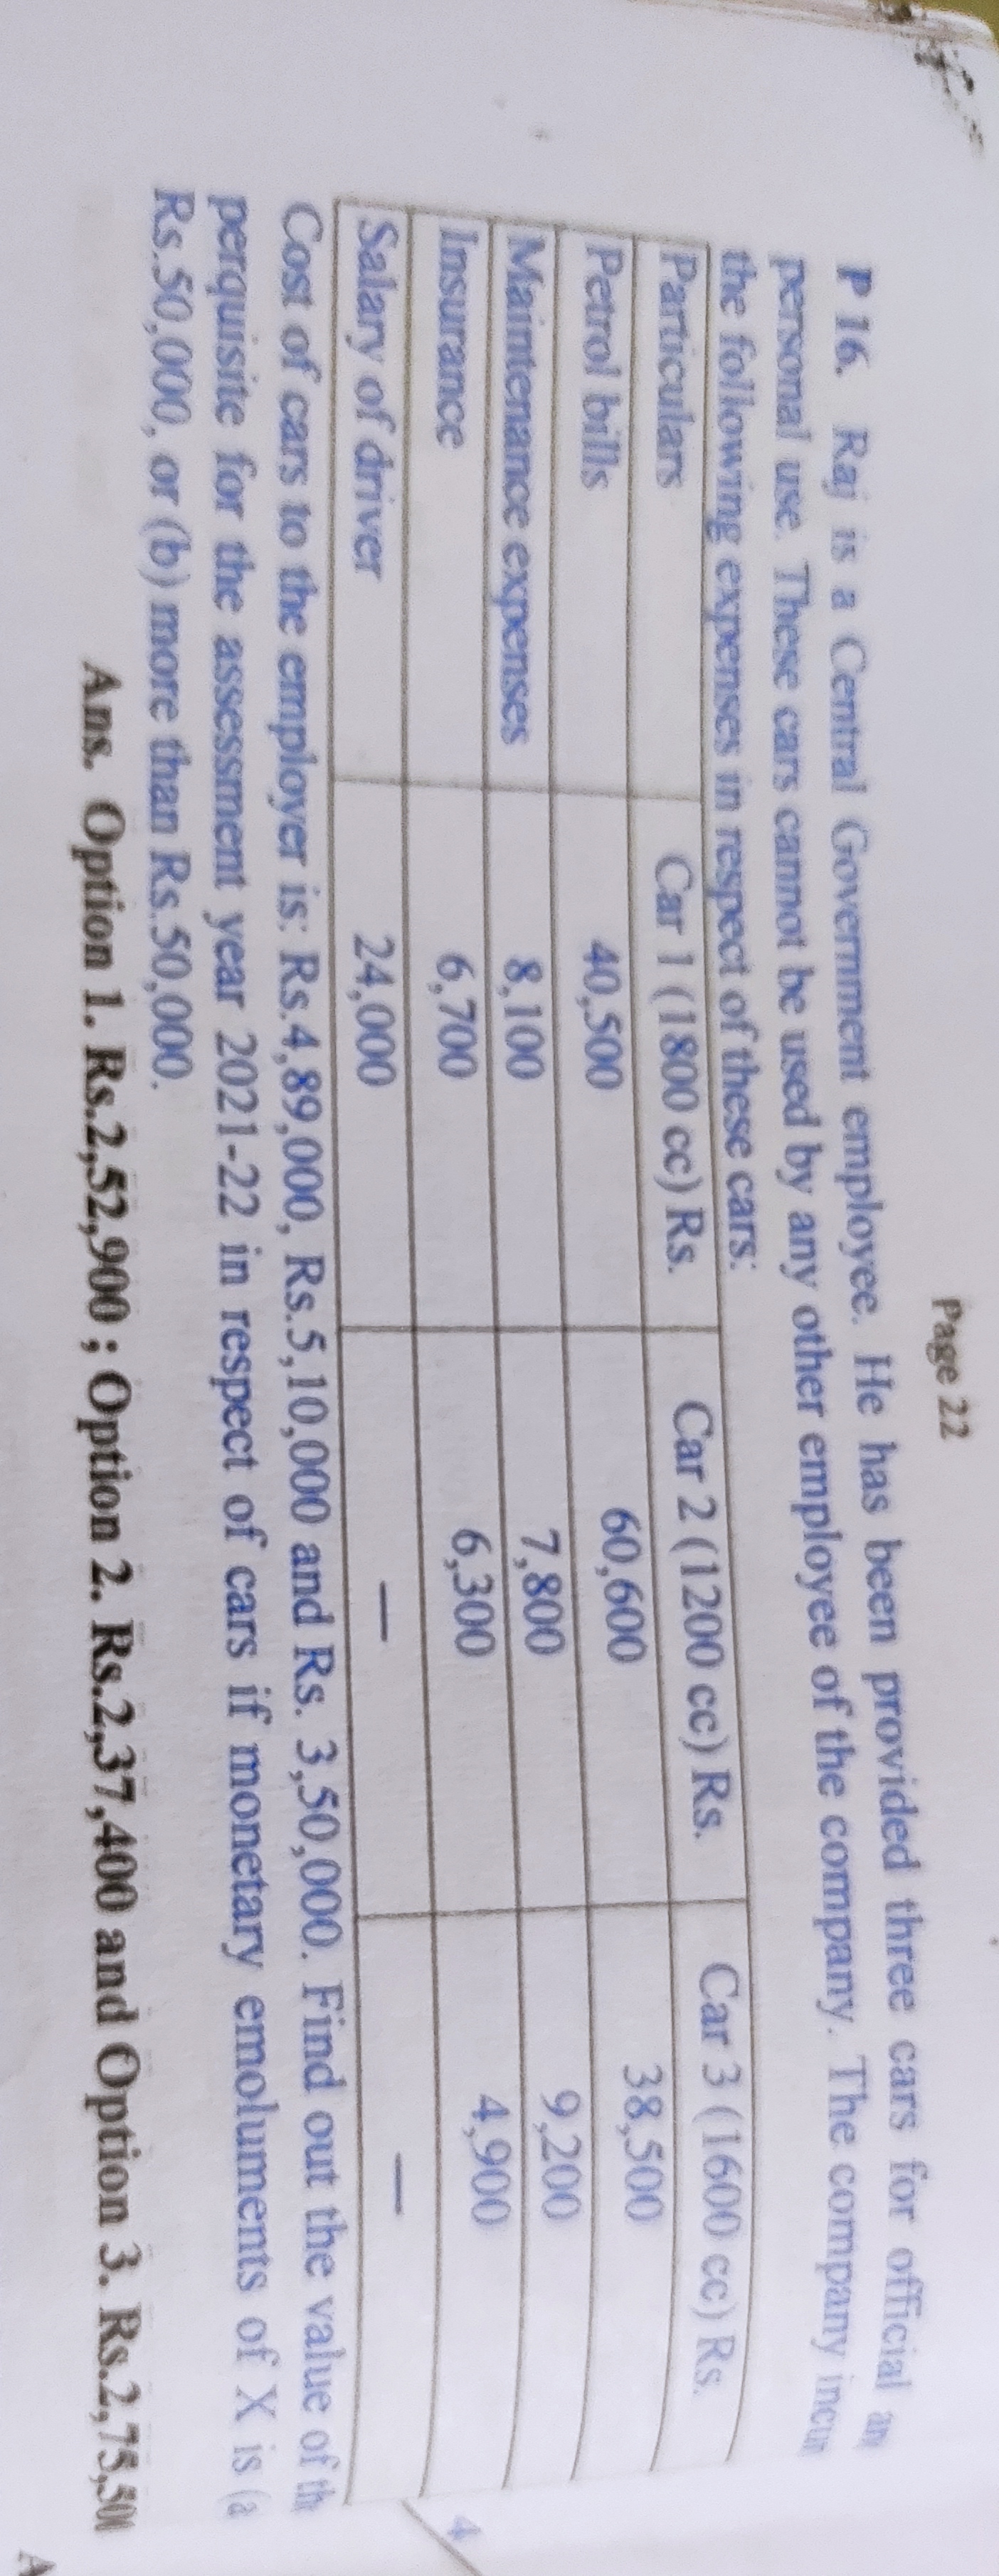 Page 22
P 16. Raj is a Central Government employee. He has been provided three cars for official
personal use. These cars cannot be used by any other employee of the company. The company
the following expenses in respect of these cars:
Particulars Car 1 (1800 cc) Rs. Car 2 (1200 cc) Rs. Car 3 (1600 cc) Rs.
Petrol bills 40,500 60,600 38,500
Maintenance expenses 8,100 7,800 9,200
Insurance 6,700 6,300 4,900
Salary of driver 24,000 — —
Cost of cars to the employer is: Rs.4,89,000, Rs.5,10,000 and Rs. 3,50,000. Find out the value of
perquisite for the assessment year 2021-22 in respect of cars if monetary emoluments of X is (a
Rs.50,000, or (b) more than Rs.50,000.
Ans. Option 1. Rs.2,52,900 ; Option 2. Rs.2,37,400 and Option 3.
4
A